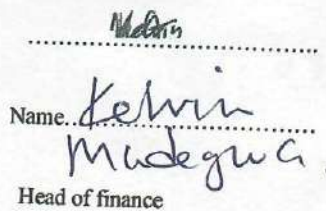 Kelvin
Name..Kelvin
Madegwa
Head of finance